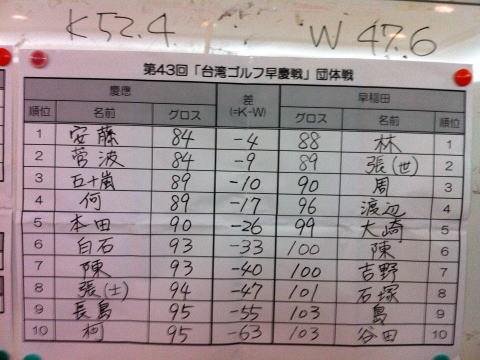 K 52.4 W 47.6
第43回「台湾ゴルフ早慶戦」団体戦
慶應 差 (=K-W) 早稲田
順位 名前 グロス グロス 名前 順位
1 安藤 84 -4 88 林 1
2 菅波 84 -9 89 張(世) 2
3 五十嵐 89 -10 90 周 3
4 何 89 -17 96 渡辺 4
5 本田 90 -26 99 大崎 5
6 白石 93 -33 100 陳 6
7 陳 93 -40 100 吉野 7
8 張(士) 94 -47 101 石塚 8
9 長島 95 -55 103 島 9
10 柯 95 -63 103 谷田 10